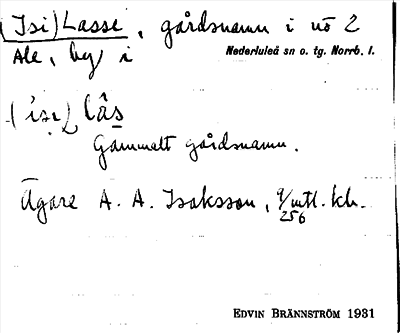 (Isi) Lasse, gårdsnamn i nö 2
Ale, by i Nederluleå sn o. tg. Norrb. l.
(isi) lâs
Gammalt gårdsnamn.
Ägare A. A. Isaksson, 9/256 mtl. kr.
EDVIN BRÄNNSTRÖM 1931